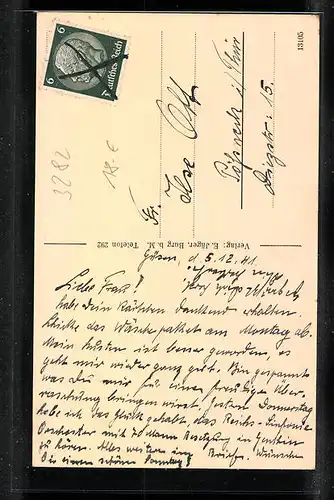 6 Deutsches Reich 6
3282
18.-€
Fr.
Ilse Ott
Pößneck i/Thür
15.
Verlag: E. Jäger, Burg b. M., Telefon 292
13105
d. 5.12.41
Liebe Frau!
habe Dein Kärtchen dankend erhalten.
Schicke das Wäschepaket am Montag ab.
Mein Husten ist besser geworden, es
geht mir wieder ganz gut. Bin gespannt
was Du mir für eine freudigen Über-
raschung bringen wirst. Gestern Donnerstag
habe ich das Glück gehabt, das Reichs-Sinfonie
Orchester mit 70 Mann Besetzung in Genthin
zu hören. Alles weitere im Briefe. Wünsche
Dir einen schönen Sonntag!